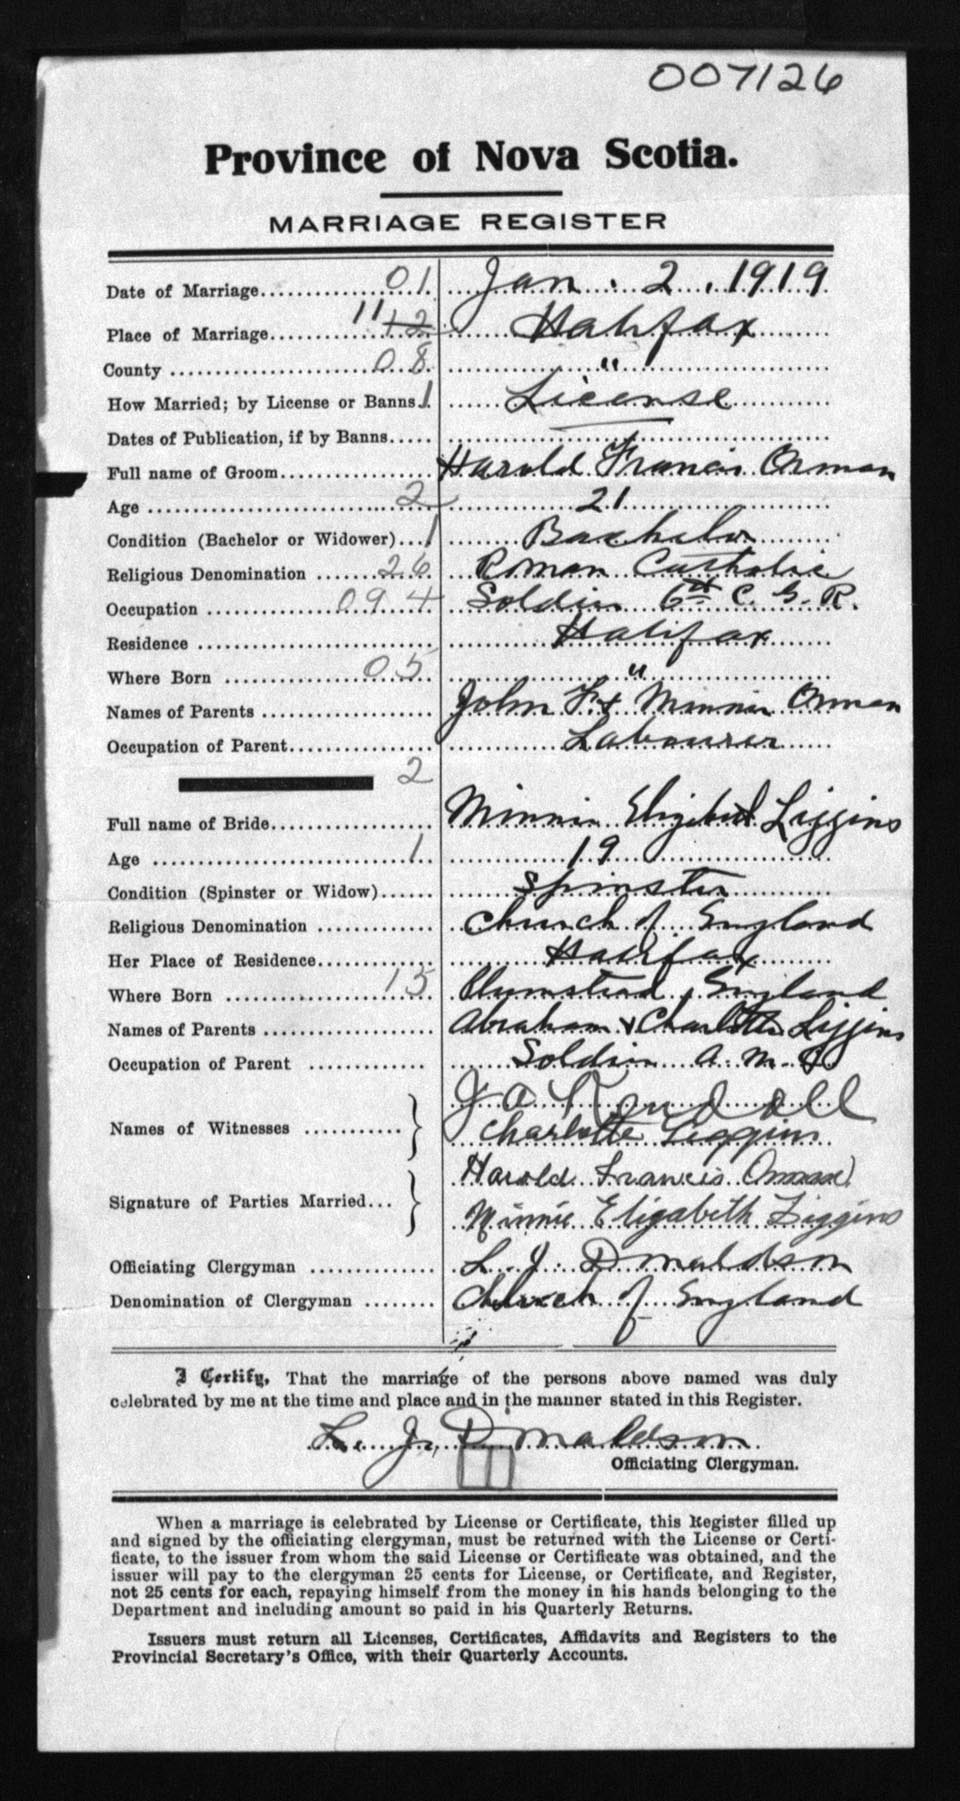 007126
Province of Nova Scotia.
MARRIAGE REGISTER
Date of Marriage 01 Jan. 2, 1919
Place of Marriage 11 12 Halifax
County 08 "
How Married; by License or Banns 1 License
Dates of Publication, if by Banns
Full name of Groom Harold Francis Orman
Age 2 21
Condition (Bachelor or Widower) 1 Bachelor
Religious Denomination 26 Roman Catholic
Occupation 094 Soldier 6th C. G. R.
Residence Halifax
Where Born 05 "
Names of Parents John F + Minnie Orman
Occupation of Parent Labourer
2
Full name of Bride Minnie Elizabeth Liggins
Age 1 19
Condition (Spinster or Widow) Spinster
Religious Denomination Church of England
Her Place of Residence Halifax
Where Born 15 Plumstead, England
Names of Parents Abraham + Charlotte Liggins
Occupation of Parent Soldier A. M. C.
J A Rondall
Names of Witnesses
Charlotte Liggins
Harold Francis Orman
Signature of Parties Married
Minnie Elizabeth Liggins
Officiating Clergyman L. J. Donaldson
Denomination of Clergyman Church of England
I Certify, That the marriage of the persons above named was duly
celebrated by me at the time and place and in the manner stated in this Register.
L. J. Donaldson
Officiating Clergyman.
When a marriage is celebrated by License or Certificate, this Register filled up
and signed by the officiating clergyman, must be returned with the License or Certi-
ficate, to the issuer from whom the said License or Certificate was obtained, and the
issuer will pay to the clergyman 25 cents for License, or Certificate, and Register,
not 25 cents for each, repaying himself from the money in his hands belonging to the
Department and including amount so paid in his Quarterly Returns.
Issuers must return all Licenses, Certificates, Affidavits and Registers to the
Provincial Secretary's Office, with their Quarterly Accounts.